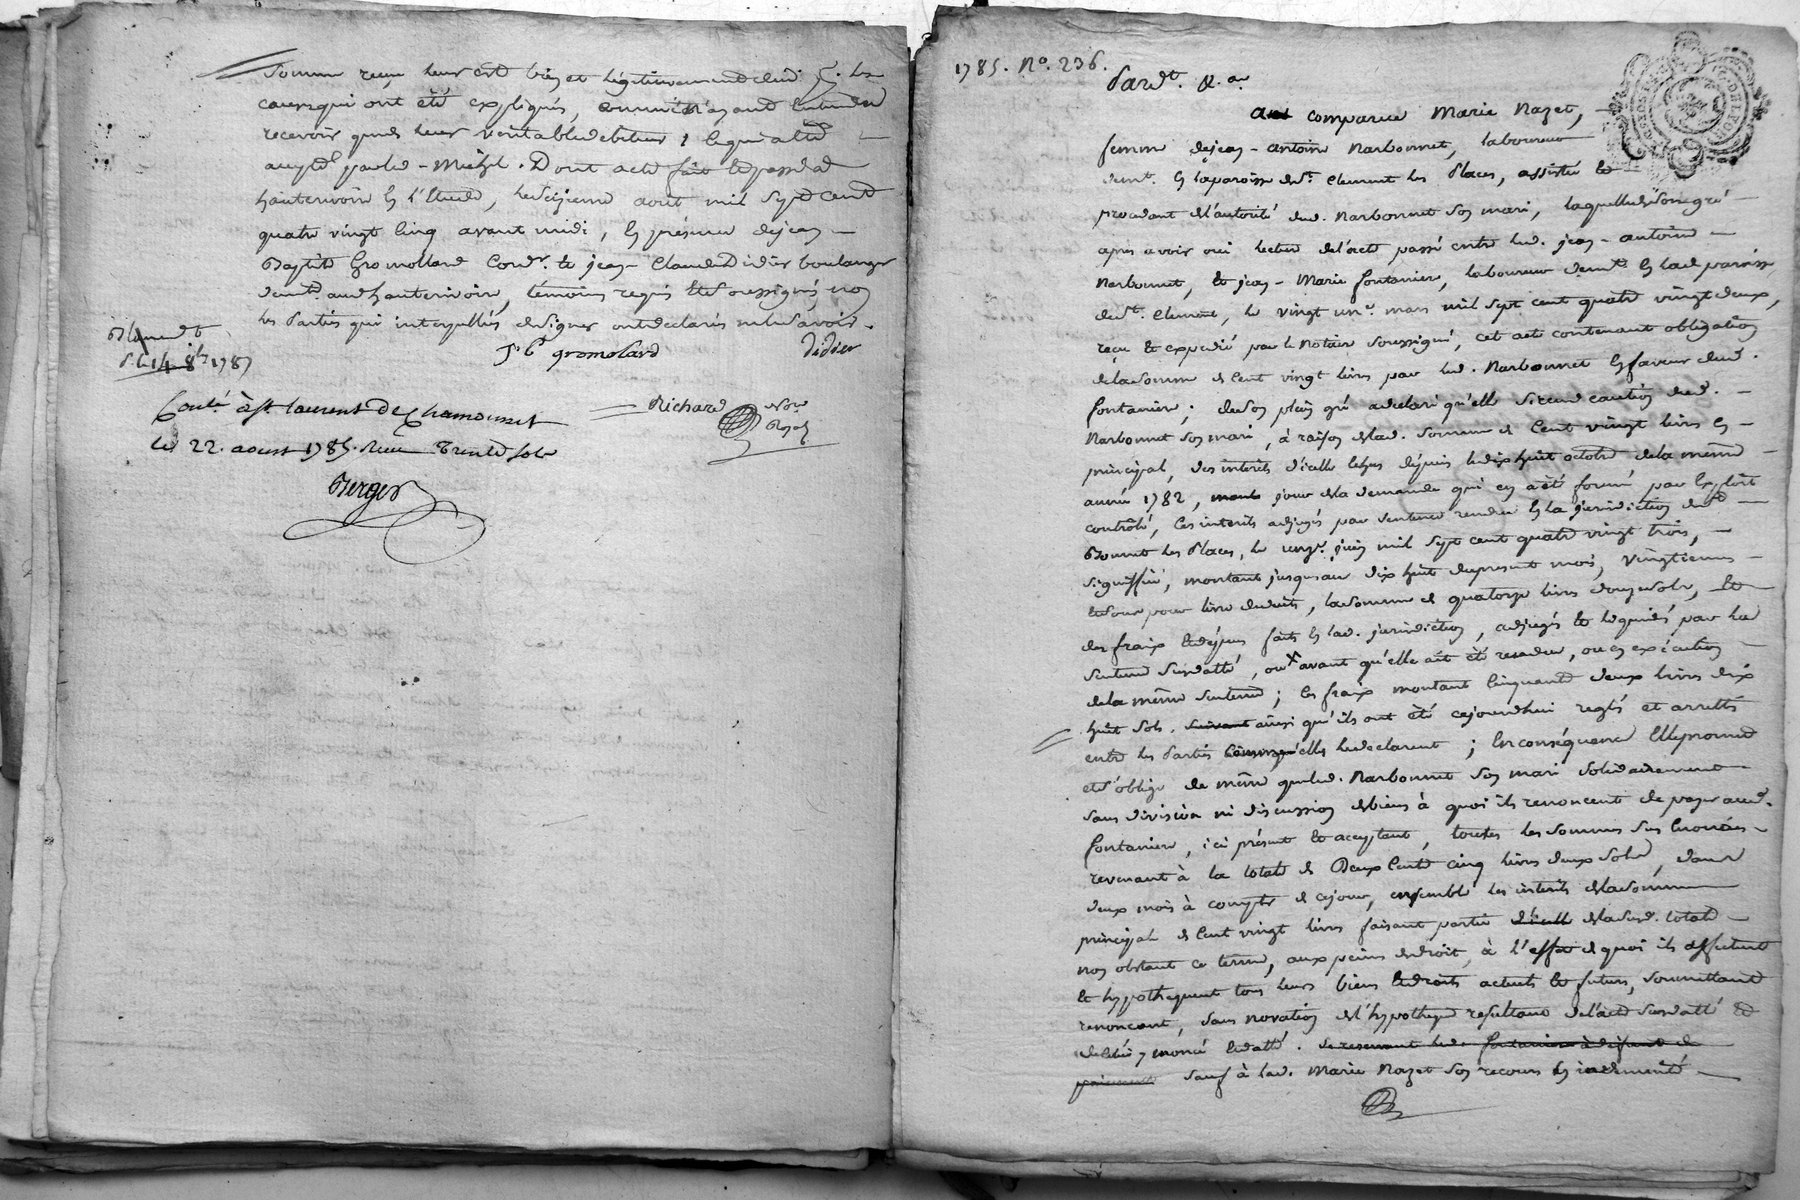 somme reçue leur est bien et légitimement due
causes qui ont été expliqués, comme n'ayant entendu
recevoir que de leur veritable debiteur ; ce qui a été
accepté par led. Michel. Dont acte fait et passé a
hauterivoire en l'Etude, le seizieme aout mil sept cent
quatre vingt cinq avant midi, en présence de jean
Baptiste Gromollard Cord.r et jean Claude Didier boulanger
demt. aud hauterivoire, témoins requis et soussignés non
les Parties qui interpellées de signer ont declarés ne le savoir.
J B gromolard didier
d. le 14 8bre 1787
Richard Not.re Royal
Conté. à st. laurens De Chamousset
le 22. aoust 1785. Reçu Trente sols
Berger
1785. N°. 236.
Pardt. &.a
est comparue Marie Nazet,
femme de jean-antoine Narbonnet, laboureur
demt. en la paroisse de St. Clement les Places, assistée et
procedant de l'autorité dud. Narbonnet son mari, laquelle de son gré
après avoir oui lecture de l'acte passé entre led. jean-antoine
Narbonnet, et jean-Marie fontanier, laboureur demt. en lad paroisse
de St. Clement, le vingt un.e mars mil sept cent quatre vingt deux,
reçu et expedié par le Notaire soussigné, cet acte contenant obligation
de la somme de Cent vingt livres par led. Narbonnet en faveur dud.
fontanier ; de son plein gré a declaré qu'elle se rend caution dud.
Narbonnet son mari, à raison de lad. somme de Cent vingt livres en
principal, des interêts d'icelle echus depuis le dix huit octobre de la même
année 1782, jour de la demande qui en a été formé par Exploit
contrôlé, ces interêts adjugés par sentence rendue en la jurisdiction de
les Places, le juin mil sept cent quatre vingt trois,
signiffiée, montant jusqu'au dix huit du present mois, vingtiemes
et sous pour livre deduits, la somme de quatorze livres douze sols, et
des fraix et dépens faits en lad. jurisdiction, adjugés et liquidés par la
sentence susdatté, ou avant qu'elle ait été rendue, ou en exécution
de la même sentence ; ces fraix montant Cinquante deux livres dix
huit sols. suivant ainsi qu'ils ont été cejourdhui reglés et arrettés
entre les Parties comme elles le declarent ; En conséquence Elle promet
et s'oblige de même que led. Narbonnet son mari solidairement
sans division ni discussion de biens à quoi ils renoncent de payer aud.
fontanier, ici présent et acceptant, toutes les sommes sus énoncées
revenant à la totale de Deux Cents cinq livres deux sols, dans
deux mois à compter de cejour, ensemble les interêts de la somme
principale de Cent vingt livres faisant partie d'icelle de la susd. totale
non obstant ce terme, aux peines de droit, à l'effet de quoi ils affectent
et hypothequent tous leurs biens et droits actuels et futurs, soumettant
renonçant, sans novation de l'hypotheque resultant de l'acte susdatté et
de celui énoncé et datté. se reservant led. fontanier à défaut de
paiement sauf à lad. Marie Nazet son recours en indemnité